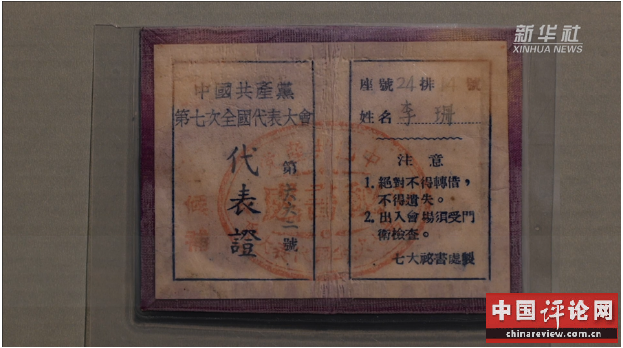 新华社
XINHUA NEWS
中國共產黨
第七次全國代表大會
代表證
第六六一號
候補
座號24排14號
姓名 李珊
注意
1. 絕對不得轉借，
不得遺失。
2. 出入會場須受門
衛檢查。
七大祕書處製
中国评论网
chinareview.com.cn